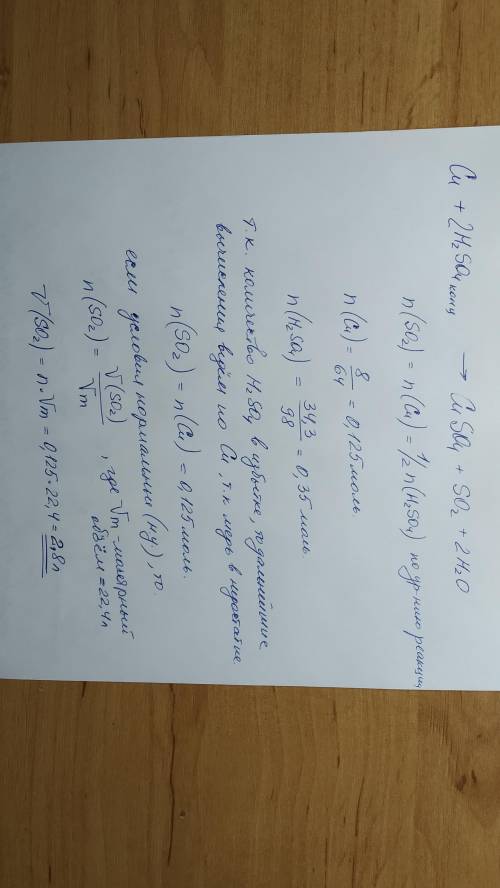 Cu + 2H₂SO₄ конц → CuSO₄ + SO₂ + 2H₂O
n(SO₂) = n(Cu) = 1/2 n(H₂SO₄) по ур-нию реакции
n(Cu) = 8/64 = 0,125 моль.
n(H₂SO₄) = 34,3/98 = 0,35 моль.
т.к. количество H₂SO₄ в избытке, то дальнейшие
вычисления ведём по Cu, т.к. медь в недостатке
n(SO₂) = n(Cu) = 0,125 моль.
если условия нормальные (н.у), то
n(SO₂) = V(SO₂)/Vm, где Vm - молярный
объём = 22,4л
V(SO₂) = n·Vm = 0,125·22,4 = 2,8л